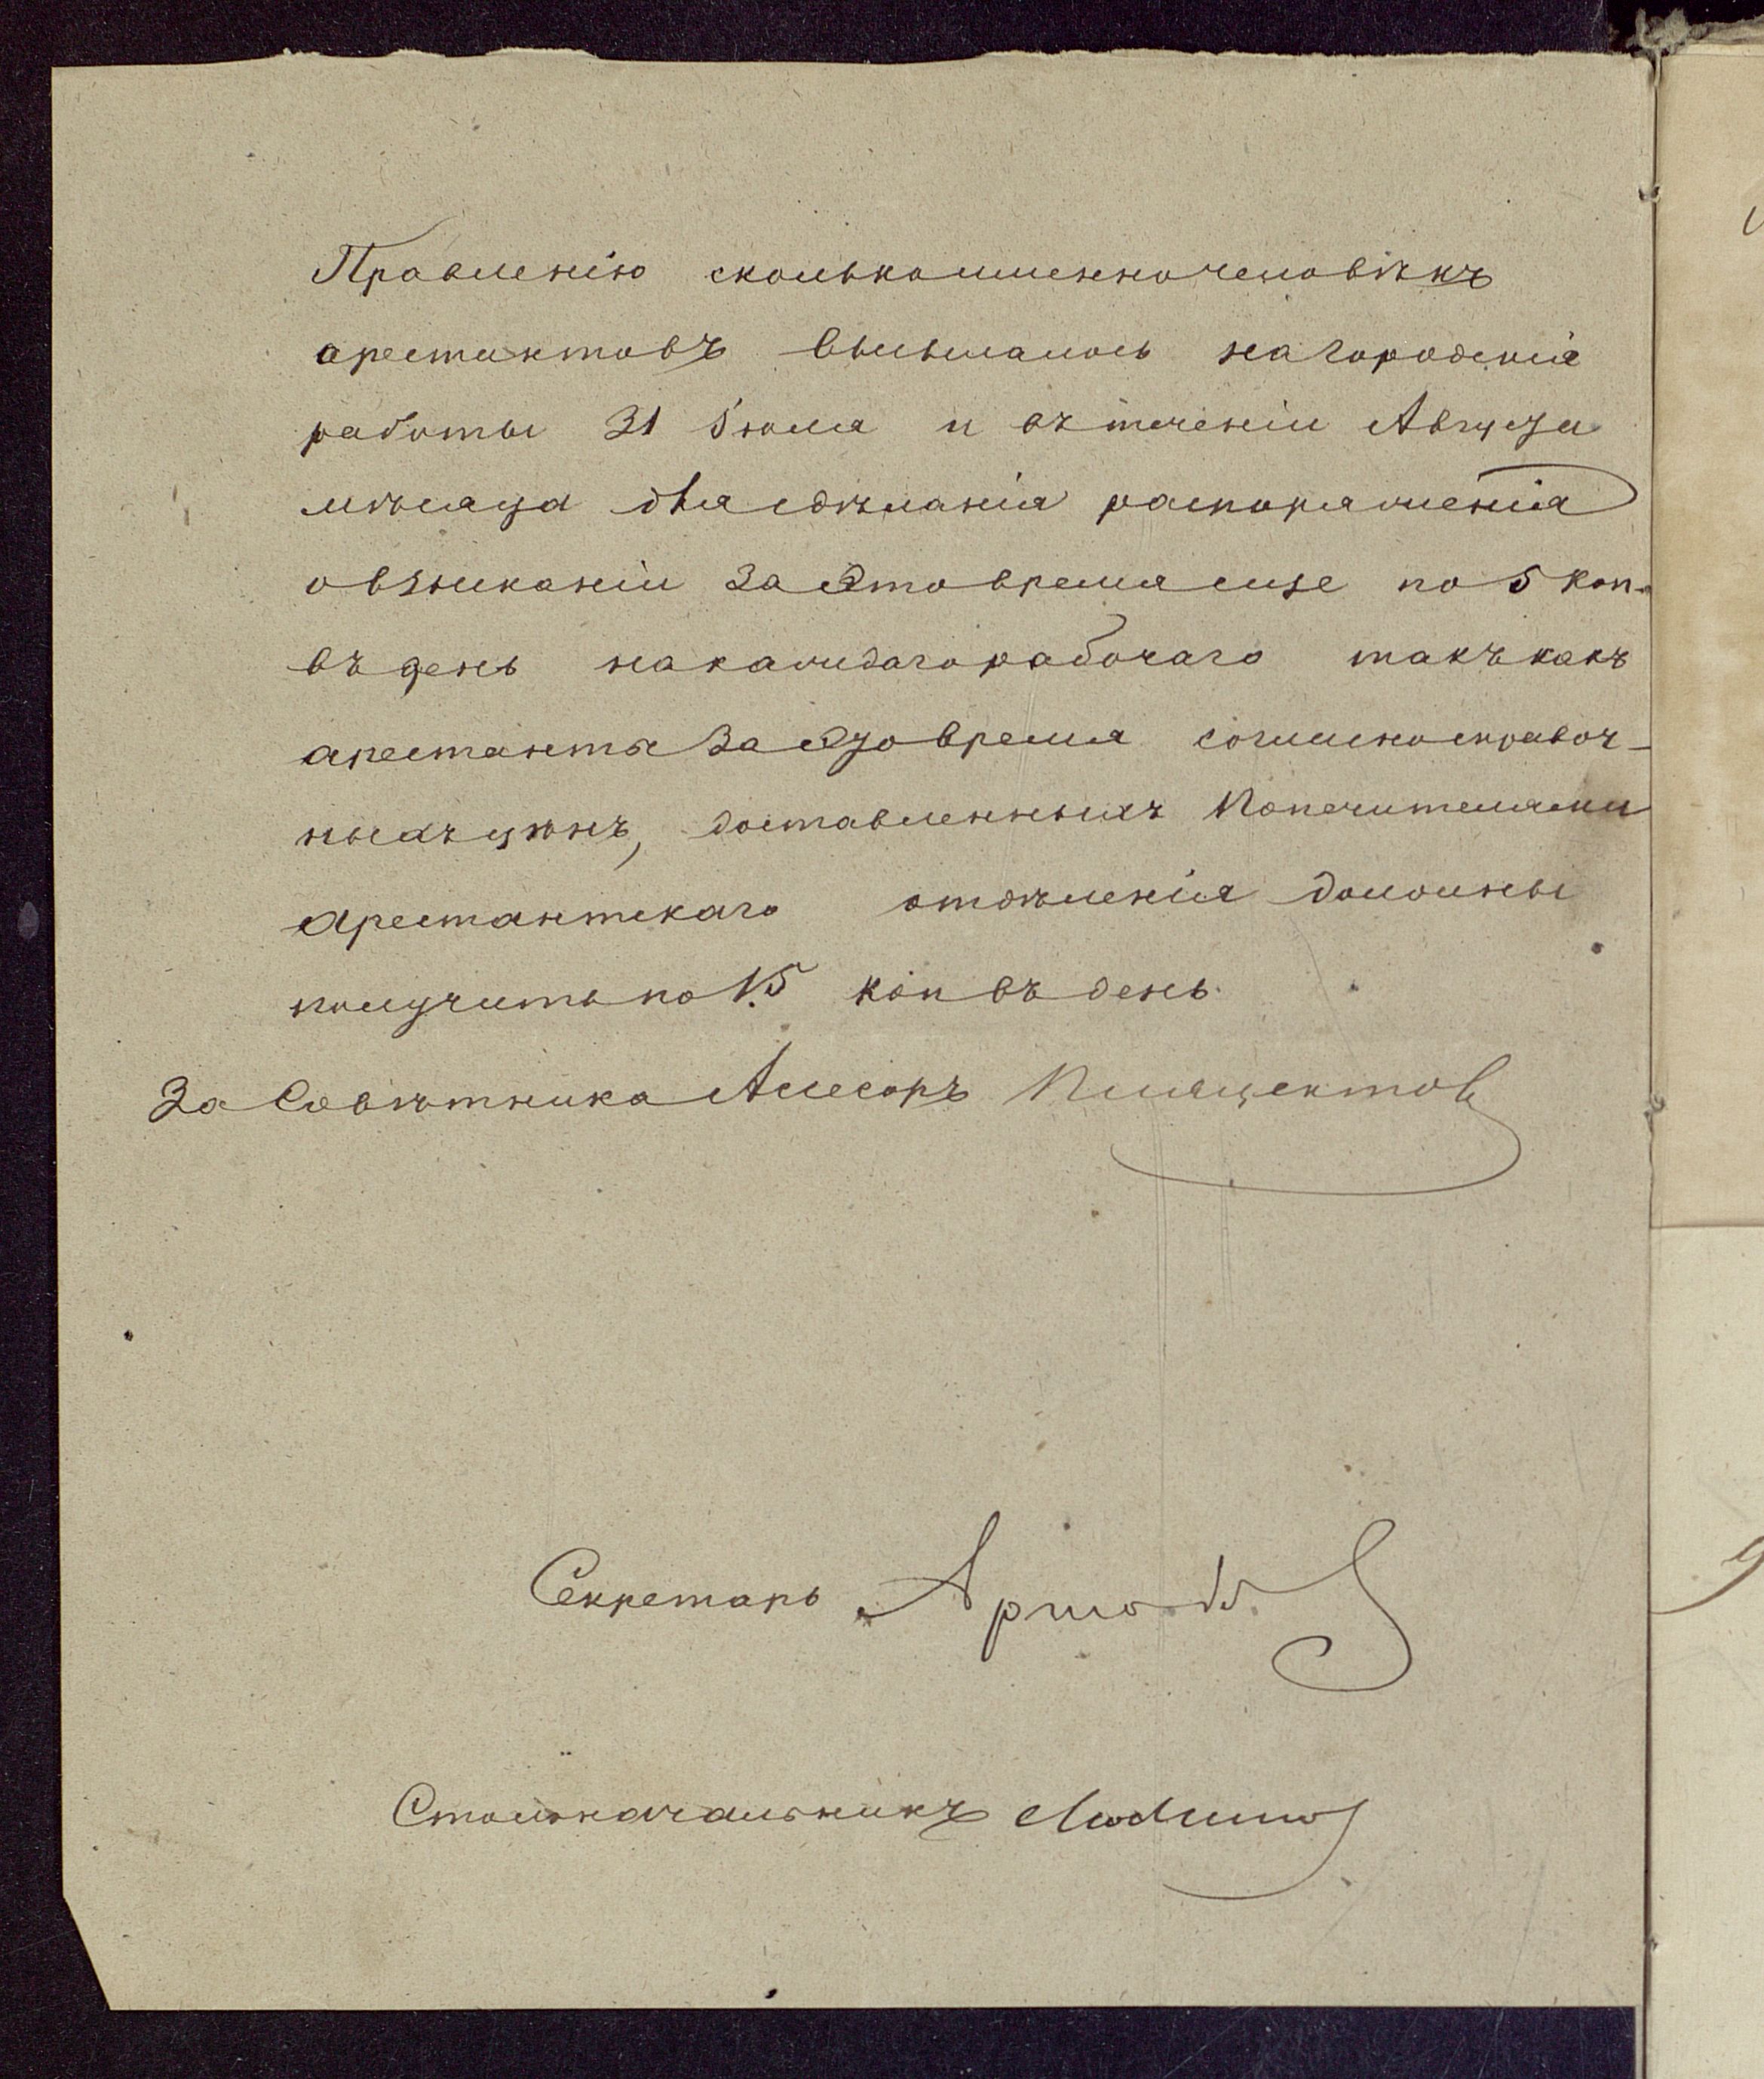 Правленію сколькоименночеловѣкъ
арестантовъ высылалось нагородскія
работы 31 Іюля и втеченіи Августа
мѣсяца для сдѣланія распоряженія
овзысканіи за это время еще по 5 коп.
въ день накаждагорабочаго такъ какъ
арестанты За это время согласносправоч-
ныхъ цѣнъ, доставленныхъ Попечителями
Арестантскаго отдѣленія должны
получить по 15 коп въ день.
За Совѣтника Асесоръ
Секретарь
Столоначальникъ